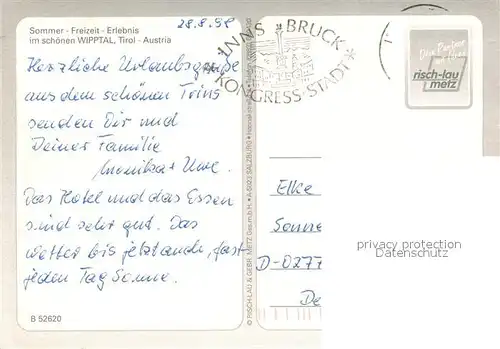 Sommer - Freizeit - Erlebnis
im schönen WIPPTAL, Tirol - Austria
28.8.98
Herzliche Urlaubsgrüße
aus dem schönen Trins
senden Dir und
Deiner Familie
Monika + Uwe.
Das Hotel und das Essen
sind sehr gut. Das
Wetter bis jetzt auch, fast
jeden Tag Sonne.
B 52620
© RISCH-LAU & GEBR. METZ Ges.m.b.H. • A-5023 SALZBURG
INNSBRUCK
KONGRESS-STADT
risch-lau
metz
Elke
Sonne
D-0277
De
privacy protection
Datenschutz